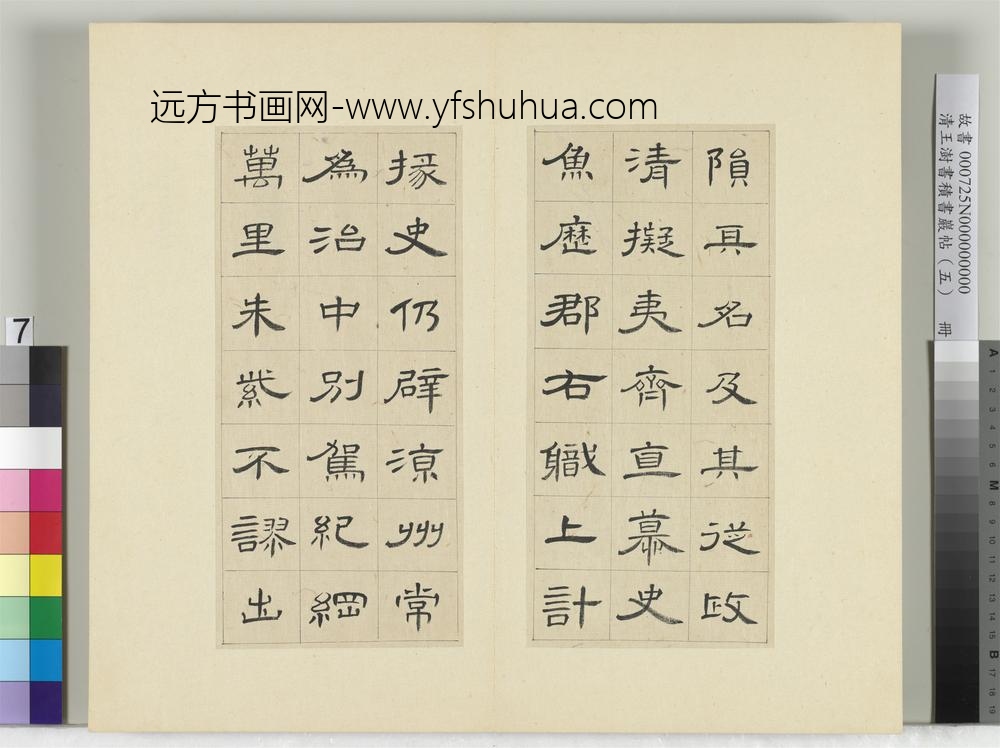 远方书画网-www.yfshuhua.com
隕其名及其從政
清擬夷齊直慕史
魚歷郡右職上計
掾史仍辟涼州常
爲治中別駕紀綱
萬里朱紫不謬出
故書 000725N000000000
清王澍書積書巖帖(五) 冊
7
A 1 2 3 4 5 6 M 8 9 10 11 12 13 14 15 B 17 18 19